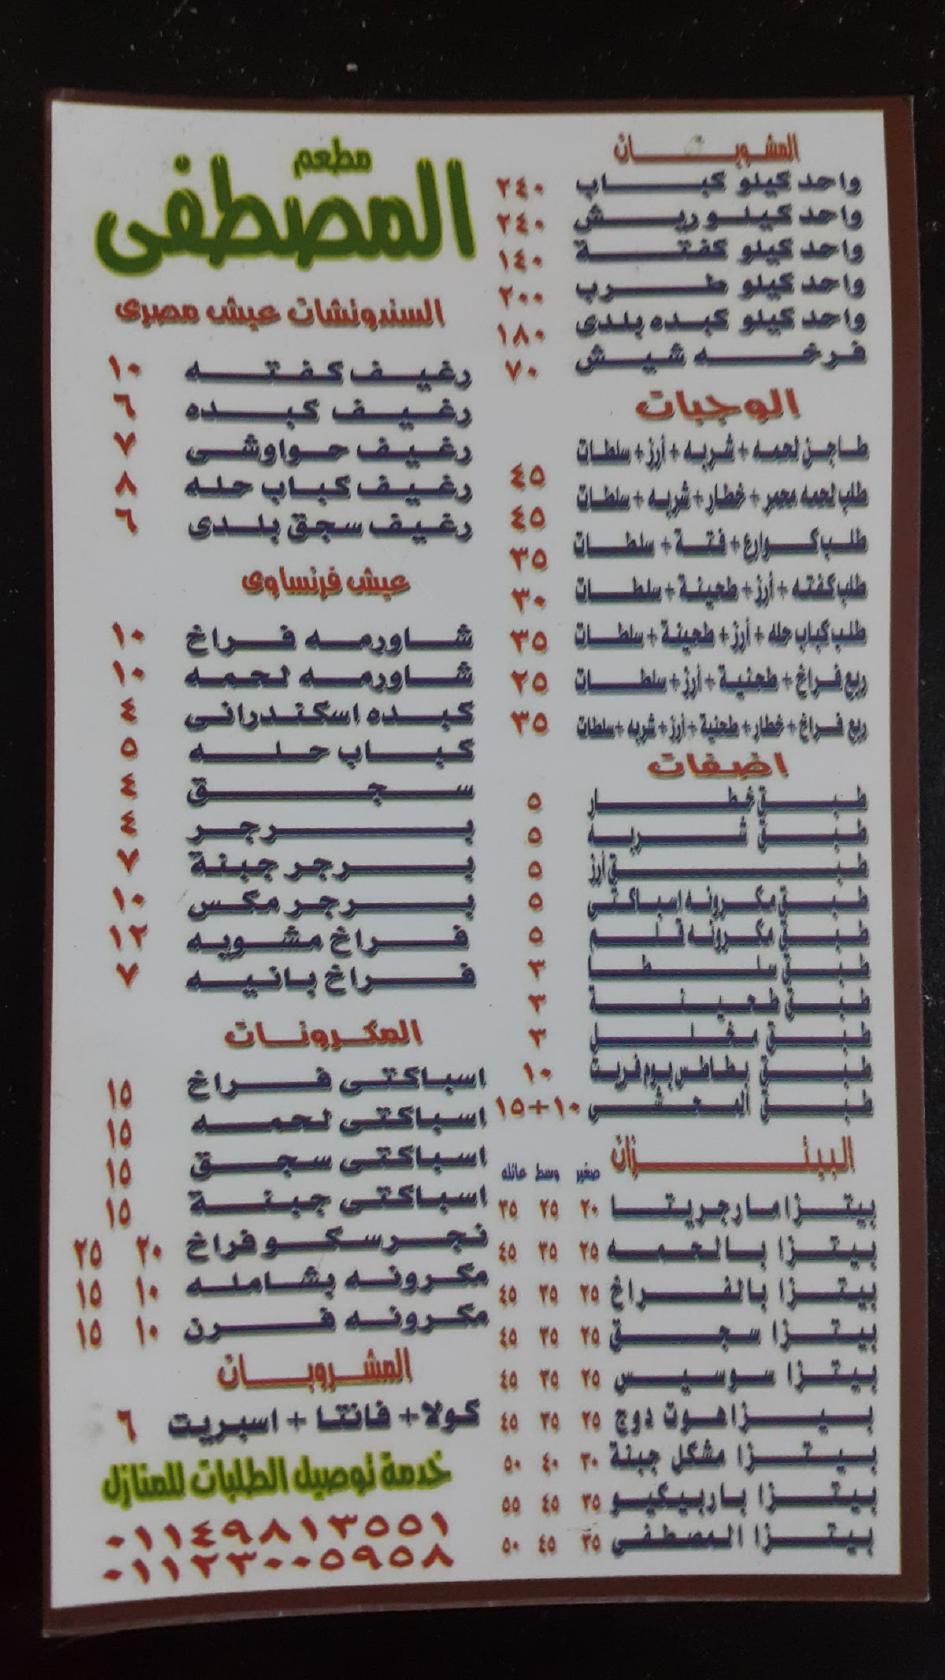 المشويات
واحد كيلو كباب ٢٤٠
واحد كيلو ريش ٢٤٠
واحد كيلو كفتة ١٤٠
واحد كيلو طرب ٢٠٠
واحد كيلو كبده بلدى ١٨٠
فرخه شيش ٧٠
الوجبات
طاجن لحمه + شربه + أرز + سلطات ٤٥
طلب لحمه محمر + خطار + شربه + سلطات ٤٥
طلب كوارع + فتة + سلطات ٣٥
طلب كفته + أرز + طحينة + سلطات ٣٠
طلب كباب حله + أرز + طحينة + سلطات ٣٥
ربع فراخ + طحنية + أرز + سلطات ٢٥
ربع فراخ + خطار + طحنية + أرز + شربه + سلطات ٣٥
اضفات
طبق خطار ٥
طبق شربه ٥
طبق أرز ٥
طبق مكرونه اسباكتى ٥
طبق مكرونه قلم ٥
طبق سلطا ٣
طبق طحينة ٣
طبق مخلل ٣
طبق بطاطس بوم فريت ١٠
طبق المحشى ١٠+١٥
البيتزات صغير وسط عائله
بيتزا مارجريتا ٢٠ ٢٥ ٣٥
بيتزا بالحمه ٢٥ ٣٥ ٤٥
بيتزا بالفراخ ٢٥ ٣٥ ٤٥
بيتزا سجق ٢٥ ٣٥ ٤٥
بيتزا سوسيس ٢٥ ٣٥ ٤٥
بيتزا هوت دوج ٢٥ ٣٥ ٤٥
بيتزا مشكل جبنة ٣٠ ٤٠ ٥٠
بيتزا باربيكيو ٣٥ ٤٥ ٥٥
بيتزا المصطفى ٣٥ ٤٥ ٥٠
مطعم
المصطفى
السندوتشات عيش مصرى
رغيف كفته ١٠
رغيف كبده ٦
رغيف حواوشى ٧
رغيف كباب حله ٨
رغيف سجق بلدى ٦
عيش فرنساوى
شاورمه فراخ ١٠
شاورمه لحمه ١٠
كبده اسكندرانى ٤
كباب حله ٥
سجق ٤
برجر ٤
برجر جبنة ٧
برجر مكس ١٠
فراخ مشويه ١٢
فراخ بانيه ٧
المكرونات
اسباكتى فراخ ١٥
اسباكتى لحمه ١٥
اسباكتى سجق ١٥
اسباكتى جبنة ١٥
نجرسكو فراخ ٢٠ ٢٥
مكرونه بشامله ١٠ ١٥
مكرونه فرن ١٠ ١٥
المشروبات
كولا + فانتا + اسبريت ٦
خدمة توصيل الطلبات للمنازل
٠١١٤٩٨١٣٥٥١
٠١١٢٣٠٠٥٩٥٨